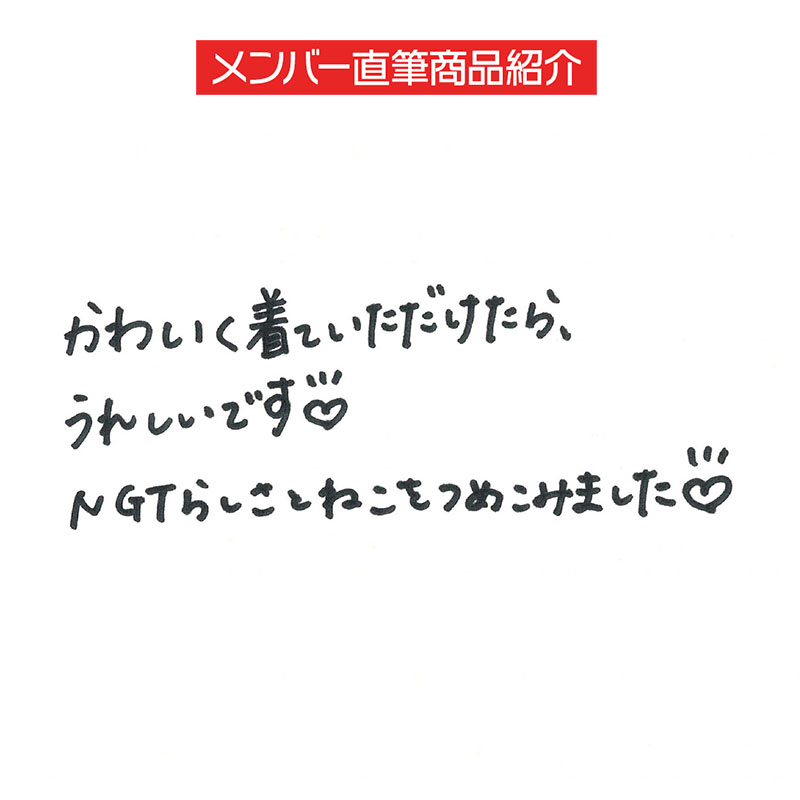 メンバー直筆商品紹介
かわいく着ていただけたら、
うれしいです♡
NGTらしさとねこをつめこみました♡